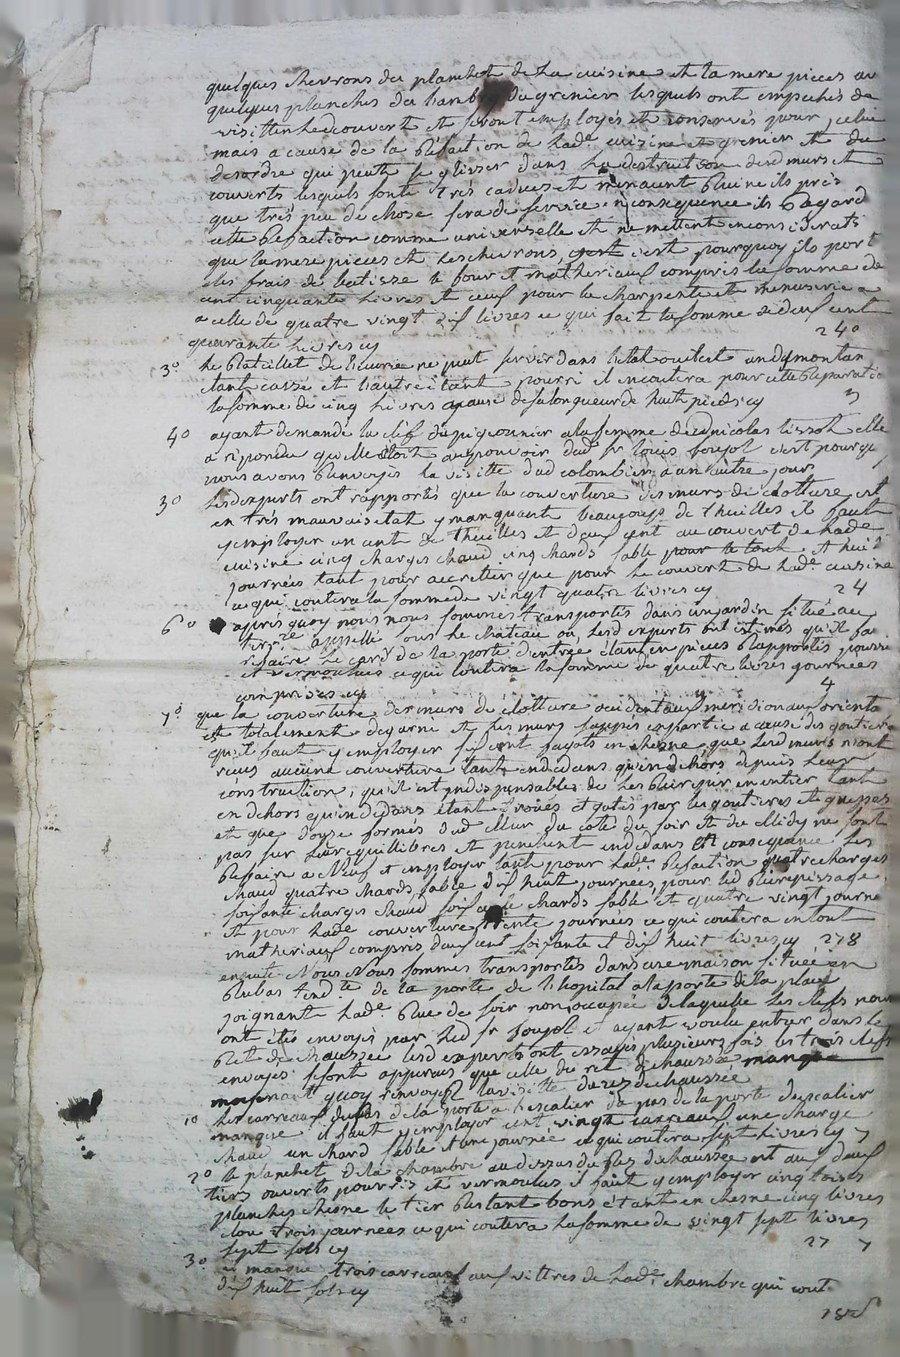 quelques chevrons du planchet de la cuisine et la mere pieces au
quelques planches du lambris du grenier lesquels ont empechés de
visitter led couvert et seront employés et conservés pour celuy
mais a cause de la refaction de lade cuizine et grenier et du
desordre qui peut se glisser dans la destruction desd murs et
couverts lesquels sont très caducs et menacent Ruine ils pres
que très peu de chose sera de service en consequence ils Regard
cette Refaction comme universelle et ne mettent en considerat
que la mere pieces et les chevrons, c'est pourquoy ils port
les frais de batisse le four et matheriaux compris la somme de
cent cinquante livres et ceux pour la charpente et menuserie a
a celle de quatre vingt dix livres ce qui fait la somme de deux cent
quarante livres cy 240
3° le Ratellier de l'ecurie ne peut servir dans l'etat ou il est un des montan
etant cassé et l'autre etant pourri il en coutera pour cette Reparatio
la somme de cinq livres a cause de sa longueur de huit pieds cy 5
4° ayant demandé la clef du pigeonnier a la femme dud nicolas tissot elle
a repondu qu'elle etoit au pouvoir dud sr louis boujol c'est pourqu
nous avons Renvoyés la visitte dud colombier a un autre jour
5° lesd experts ont rapportés que la couverture des murs de clotture est
en très mauvais etat y manquant beaucoup de thuilles il faut
y employer un cent de thuilles et deux cent au couvert de lade
cuisine cinq charges chaud cinq chards sable pour le tout et huit
journées tant pour accretier que pour le couvert de lade cuisine
ce qui coutera la somme de vingt quatre livres cy 24
6° après quoy nous nous sommes transportés dans un jardin situé au
appellé sous le chateau ou lesd experts ont estimés qu'il fa
refaire le cadre de la porte d'entrée etant en pieces Rapportés pourri
et vermoulues ce qui coutera la somme de quatre livres journées
comprises cy 4
7° que la couverture des murs de clotture occidentaux meridionaux orienta
est totalement degarni et les murs sappés en partie a cause des goutieres
qu'il faut y employer six cent fagots en chesne, que lesd murs n'ont
reçus aucune couverture tant en dedans qu'en dehors depuis leur
construction, qu'il est indispensables de les Recrepir en entier tant
en dehors qu'en dedans etant troués et gatés par les goutieres et que pas
et que dose formes dud Mur du coté du soir et du Midy ne sont
pas sur leur equilibres et penchent en dedans en consequence les
Refaire a Neuf et employer tant pour lade Refaction quatre charges
chaud quatre chards sable dix huit journées, pour led Recrepissage,
soixante charges chaud soixante chards sable et quatre vingt journe
et pour lade couverture trente journées ce qui coutera en tout
matheriaux compris deux cent soixante et dix huit livres cy 278
ensuite Nous Nous sommes transportés dans une maison situee en
de la porte de l'hopital a la porte de la place
joignant lade Rue de soir non occupée de laquelle les clefs nous
ont étés envoyés par led sr boujol et ayant voulu entrer dans le
Rez de chaussée lesd experts ont essayés plusieurs fois les trois clefs
envoyés se sont apperçus que celle du rez de chaussée manque
moyenant quoy renvoyer la visitte du rez de chaussée
1° les carreaux du bas de la porte a l'escalier du pas de la porte d'escalier
manque il faut y employer cent vingt carreaux une charge
chaud un chard sable et une journée ce qui coutera sept livres cy 7
2° le planchet de la chambre au dessus du Rez de chaussée est aux deux
tiers ouverts pourris et vermoulus il faut y employer cinq toises
planches chesne le tier Restant bons etant en chesne cinq livres
clou trois journées ce qui coutera la somme de vingt sept livres
sept sols cy 27 7
3° il manque trois carreaux aux vittres de lade chambre qui cout
dix huit sols cy 18s